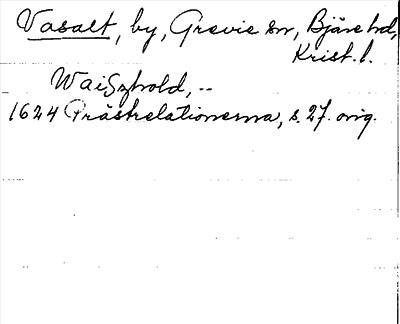 Vasalt, by, Grevie sn, Bjäre hd,
Krist. l.
Waiszhold, --
1624 Prästrelationerna, s. 27. orig.